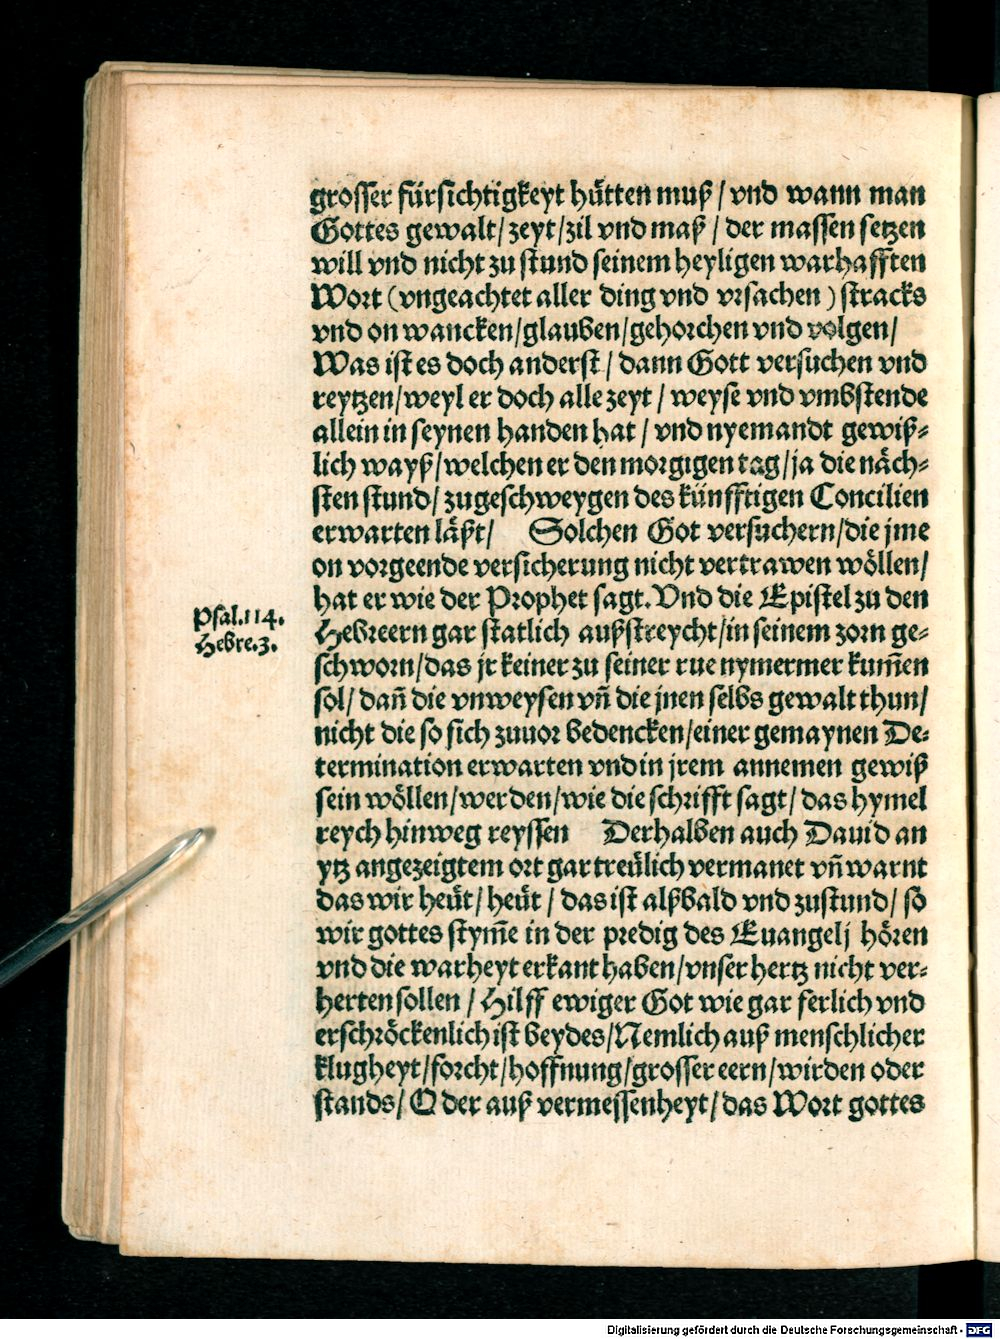 grosser fürsichtigkeyt hütten muß / vnd wann man
Gottes gewalt / zeyt / zil vnd maß / der massen setzen
will vnd nicht zu stund seinem heyligen warhafften
Wort (vngeachtet aller ding vnd vrsachen) stracks
vnd on wancken / glauben / gehorchen vnd volgen /
Was ist es doch anderst / dann Gott versuchen vnd
reytzen / weyl er doch alle zeyt / weyse vnd vmbstende
allein in seynen handen hat / vnd nyemandt gewiß⸗
lich wayß / welchen er den morgigen tag / ja die näch⸗
sten stund / zugeschweygen des künfftigen Concilien
erwarten läßt / Solchen Got versuchern / die jme
on vorgeende versicherung nicht vertrawen wöllen /
hat er wie der Prophet sagt. Vnd die Epistel zu den
Psal.114.
Hebre.3.
Hebreern gar statlich außstreycht / in seinem zorn ge⸗
schworn / das jr keiner zu seiner rue nymermer kum̄en
sol / dañ die vnweysen vñ die jnen selbs gewalt thun /
nicht die so sich zuuor bedencken / einer gemaynen De⸗
termination erwarten vnd in jrem annemen gewiß
sein wöllen / werden / wie die schrifft sagt / das hymel
reych hinweg reyssen Derhalben auch Dauid an
ytz angezeigtem ort gar treülich vermanet vñ warnt
das wir heüt / heüt / das ist alßbald vnd zustund / so
wir gottes stym̄e in der predig des Euangelj hören
vnd die warheyt erkant haben / vnser hertz nicht ver⸗
herten sollen / Hilff ewiger Got wie gar ferlich vnd
erschröckenlich ist beydes / Nemlich auß menschlicher
klugheyt / forcht / hoffnung / grosser eern / wirden oder
stands / Oder auß vermessenheyt / das Wort gottes
Digitalisierung gefördert durch die Deutsche Forschungsgemeinschaft - DFG